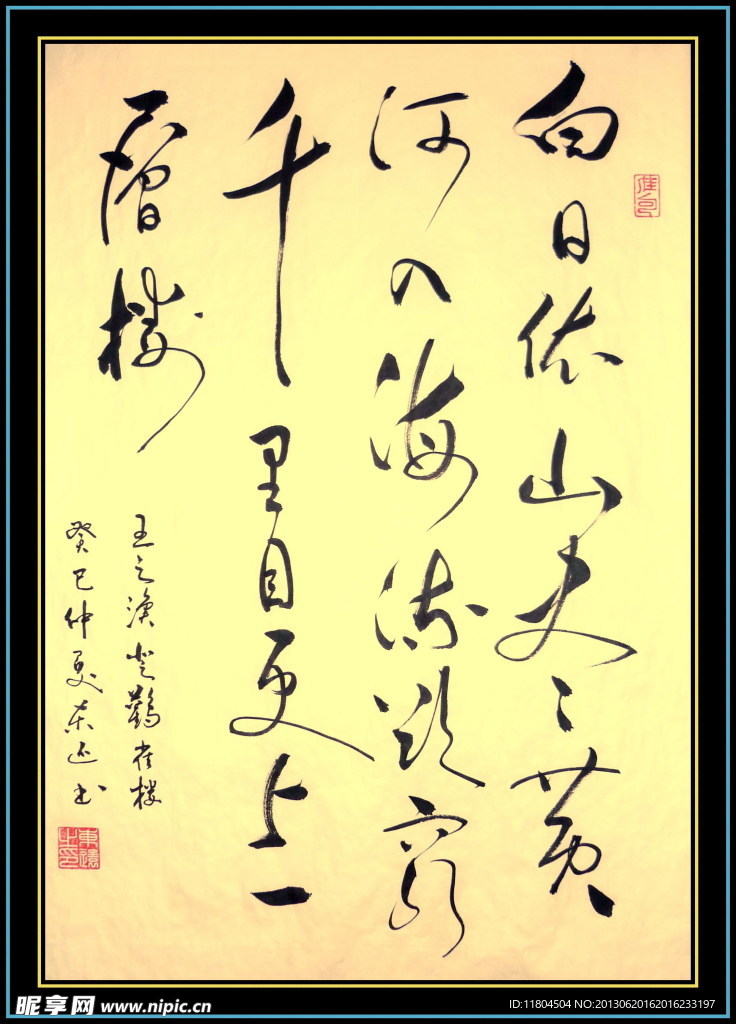 白日依山尽黄
河入海流欲穷
千里目更上一
層楼
王之涣登鹳雀楼
癸巳仲夏东书
昵享网 www.nipic.cn
ID:11804504 NO:20130620162016233197